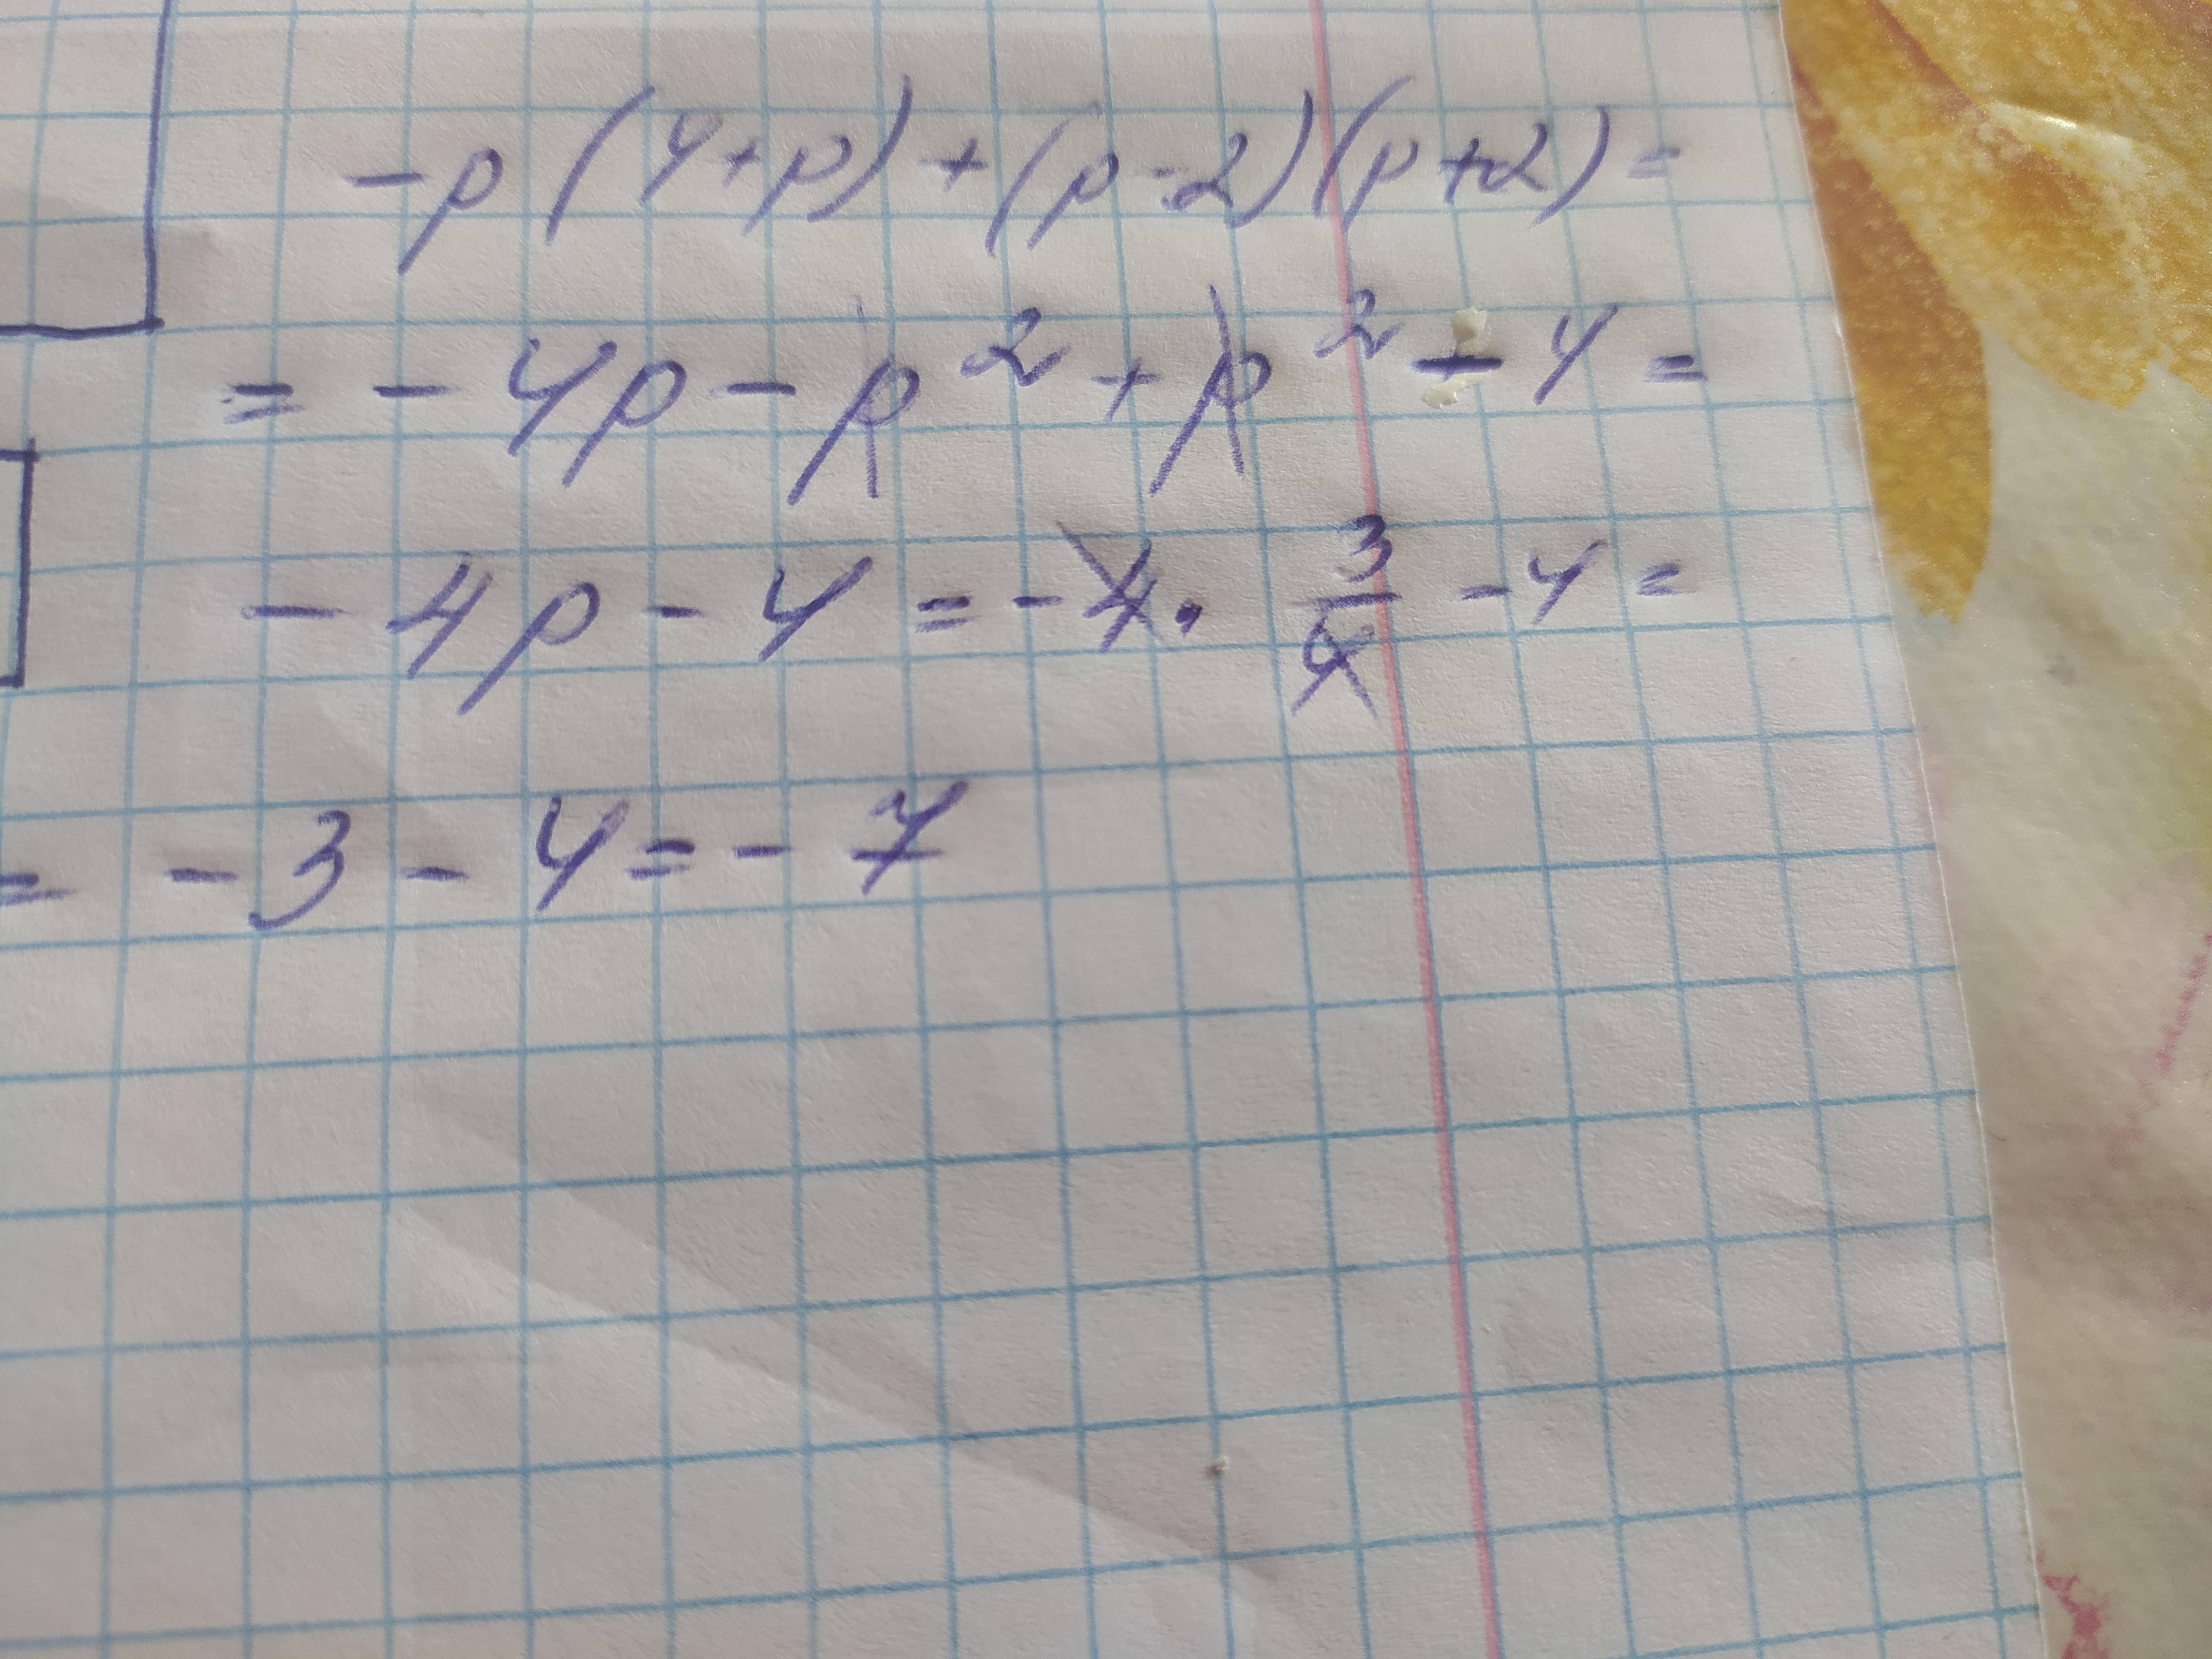 -p(4+p)+(p-2)(p+2)=
=-4p-p²+p²-4=
-4p-4=-4·3/4-4=
=-3-4=-7